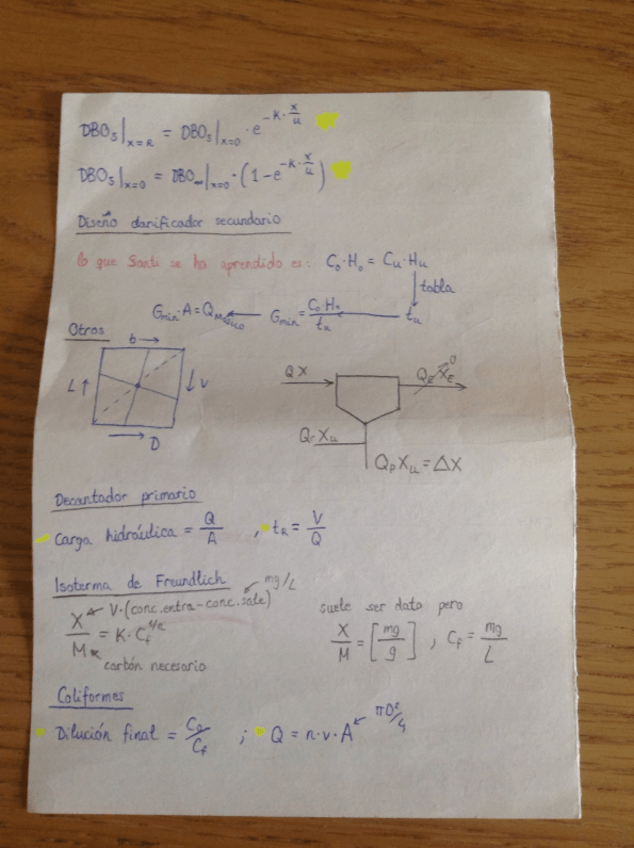 DBO₅|ₓ₌ᵣ = DBO₅|ₓ₌₀ · e^(-K·x/u)
DBO₅|ₓ₌₀ = DBO∞|ₓ₌₀ · (1-e^(-K·x/u))
Diseño clarificador secundario
Lo que Santi se ha aprendido es: C₀·H₀ = Cu·Hu
tabla
Gmin·A = Q Másico ← Gmin = C₀·H₀/tu ← tu
Otros
b →
L ↑ ↓ v
→ D
QX
Q_E X_E 0
Qr Xu
Qp Xu = ΔX
Decantador primario
Carga hidráulica = Q/A , tR = V/Q
Isoterma de Freundlich
mg/L
X ← V·(conc.entra-conc.sale)
X/M = K·Cf^(1/n)
carbón necesario
suele ser dato pero
X/M = [mg/g] ; Cf = mg/L
Coliformes
Dilución final = C₀/Cf ; Q = n·v·A ← πD²/4